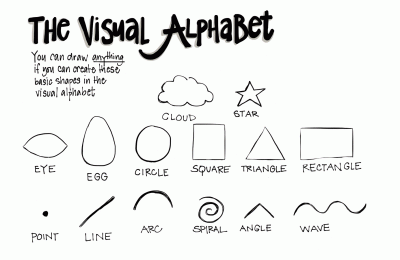 THE VISUAL ALPHABET
You can draw anything
if you can create these
basic shapes in the
visual alphabet
CLOUD
STAR
EYE
EGG
CIRCLE
SQUARE
TRIANGLE
RECTANGLE
POINT
LINE
ARC
SPIRAL
ANGLE
WAVE